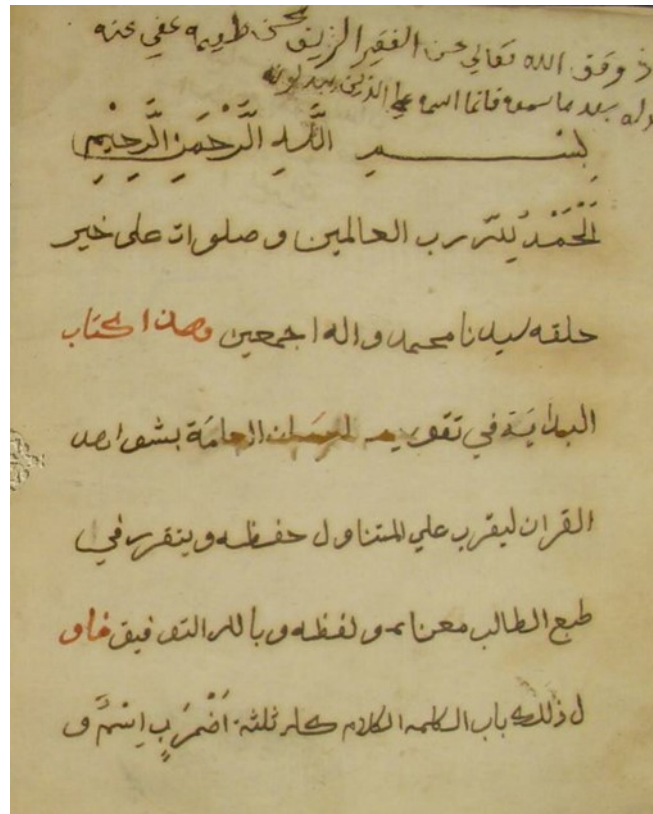 وقف الله تعالي عن الفقير الزينى محسن طريمه عفي عنه
بعد ما سمعه فانما اسمه علي الذين يبدلونه
بِسْمِ اللَّهِ الرَّحْمَنِ الرَّحِيْمِ
اَلْحَمْدُ لِلّه رب العالمين و صلوات على خير
خلقه سيدنا محمد و اله اجمعين وهذا كتاب
البداية في تقويم اللسان العامة بشواهد
القران ليقرب علي المتناول حفظه ويتقرر في
طبع الطالب معناه و لفظه و بالله التوفيق فاو
ل ذلك باب الكلمه الكلام كله ثلثة اَضْرَبٍ اِسْمٌ و